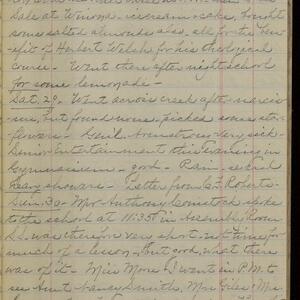 Sale at Winona - ice cream & cake, bought
some salted almonds also, all for the ben-
efit of Herbert Welsh for his theological
course. Went there after night school
for some lemonade -
Sat. 29. Went across creek after
sus, but found none. picked some
flowers - Genl. Armstrong very sick -
Senior Entertainment this evening in
Gymnasium - good - Rain - several
heavy showers. - Letter from Roberts
Sun. 30 - Mr. Anthony Comstock spoke
to the school at 11:35 in Assembly Room
S.S. was therefore very short, no time for
much of a lesson, - but good, what there
was of it - Miss Moore & I went in P.M. to
see Aunt Nancy Smith, Mrs Giles, Mr